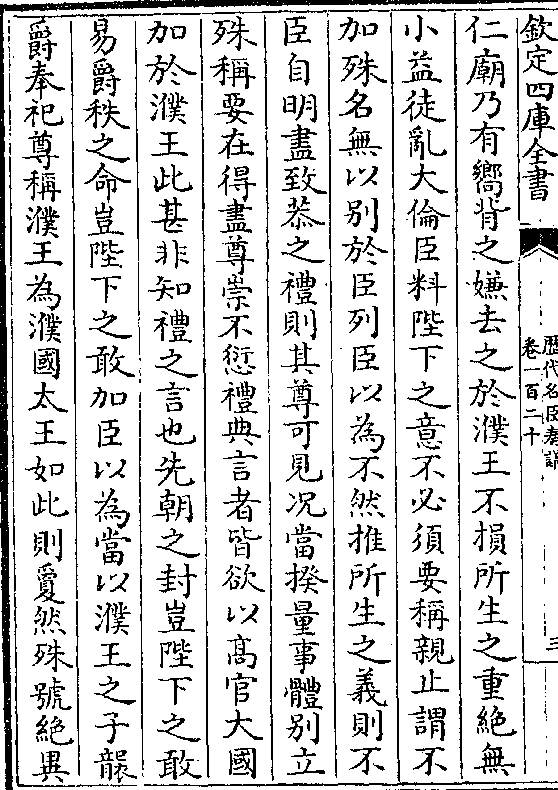 欽定四庫全書
歷代名臣奏議
卷一百二十
三
仁廟乃有嚮背之嫌去之於濮王不損所生之重絶無
小益徒亂大倫臣料陛下之意不必須要稱親止謂不
加殊名無以别於臣列臣以為不然推所生之義則不
臣自明盡致恭之禮則其尊可見况當揆量事體别立
殊稱要在得盡尊崇不愆禮典言者皆欲以髙官大國
加於濮王此甚非知禮之言也先朝之封豈陛下之敢
易爵秩之命豈陛下之敢加臣以為當以濮王之子襲
爵奉祀尊稱濮王為濮國太王如此則敻然殊號絶異